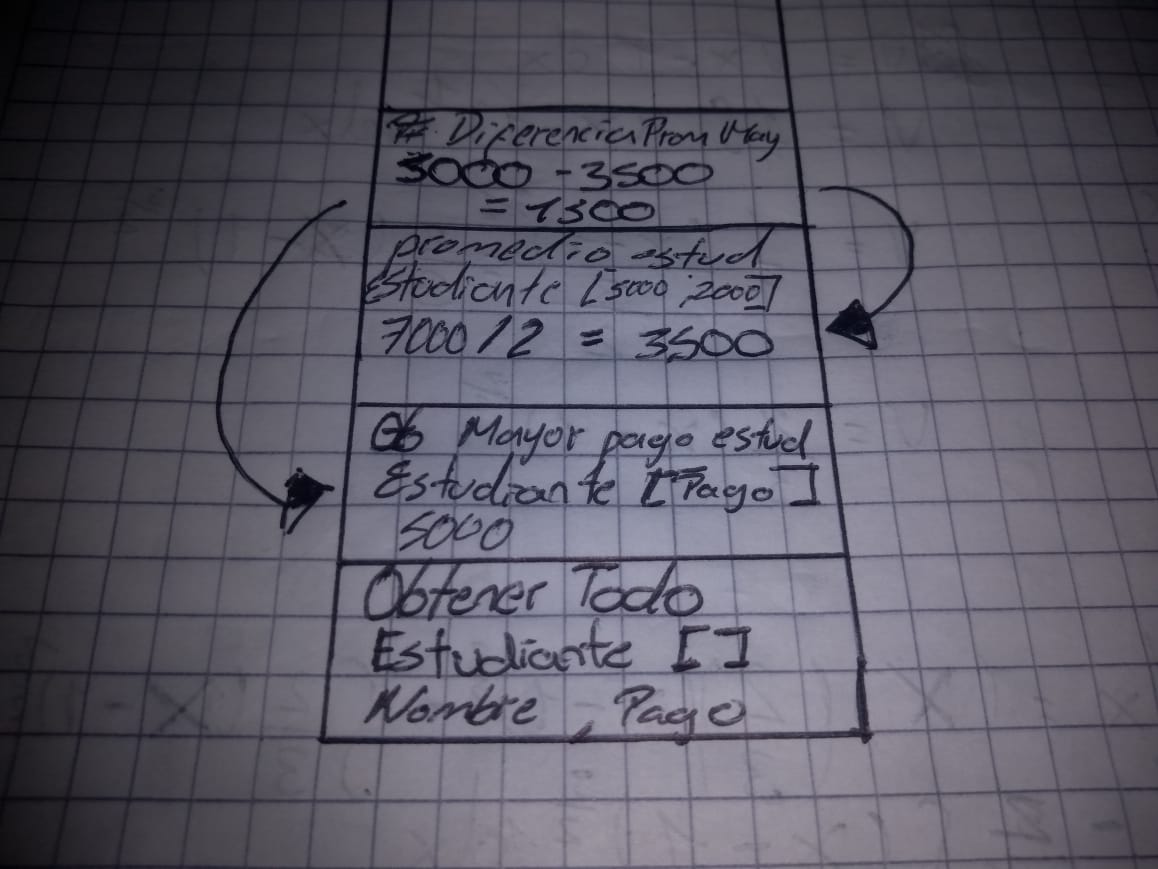 # DiferenciaPromMay
5000 - 3500
= 1500
promedio estud
Estudiante [5000, 2000]
7000 / 2 = 3500
Mayor pago estud
Estudiante [Pago]
5000
Obtener Todo
Estudiante []
Nombre, Pago